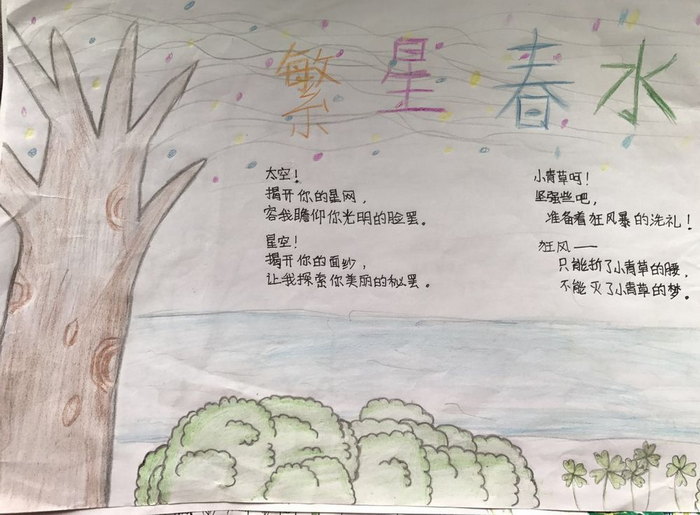 繁星春水
太空！
揭开你的星网，
容我瞻仰你光明的脸罢。
星空！
揭开你的面纱，
让我探索你美丽的秘罢。
小青草呵！
坚强些吧，
准备着狂风暴的洗礼！
狂风——
只能折了小青草的腰，
不能灭了小青草的梦。